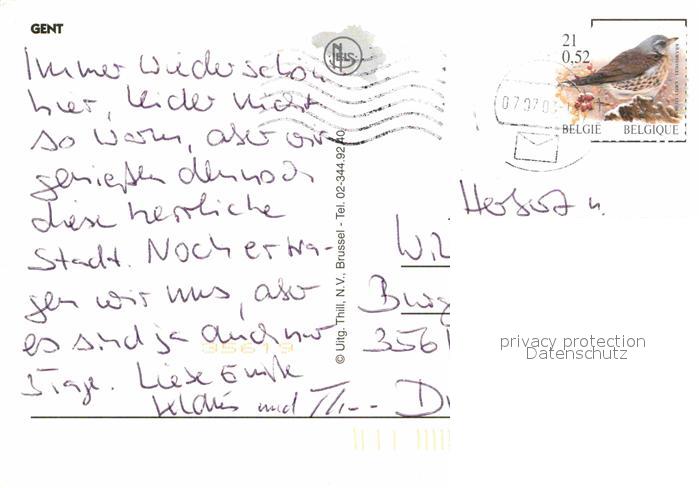 GENT
Immer wieder schön
hier, leider nicht
so warm, aber wir
genießen dennoch
diese herrliche
Stadt. Noch ertra-
gen wir uns, aber
es sind ja auch nur
3 Tage. Liebe Grüße
und
© Uitg. Thill, N.V., Brussel - Tel. 02-344.92.40
NELS
21
0,52
BELGIE BELGIQUE
07 07 0
Herbert u.
3561
35619
privacy protection
Datenschutz